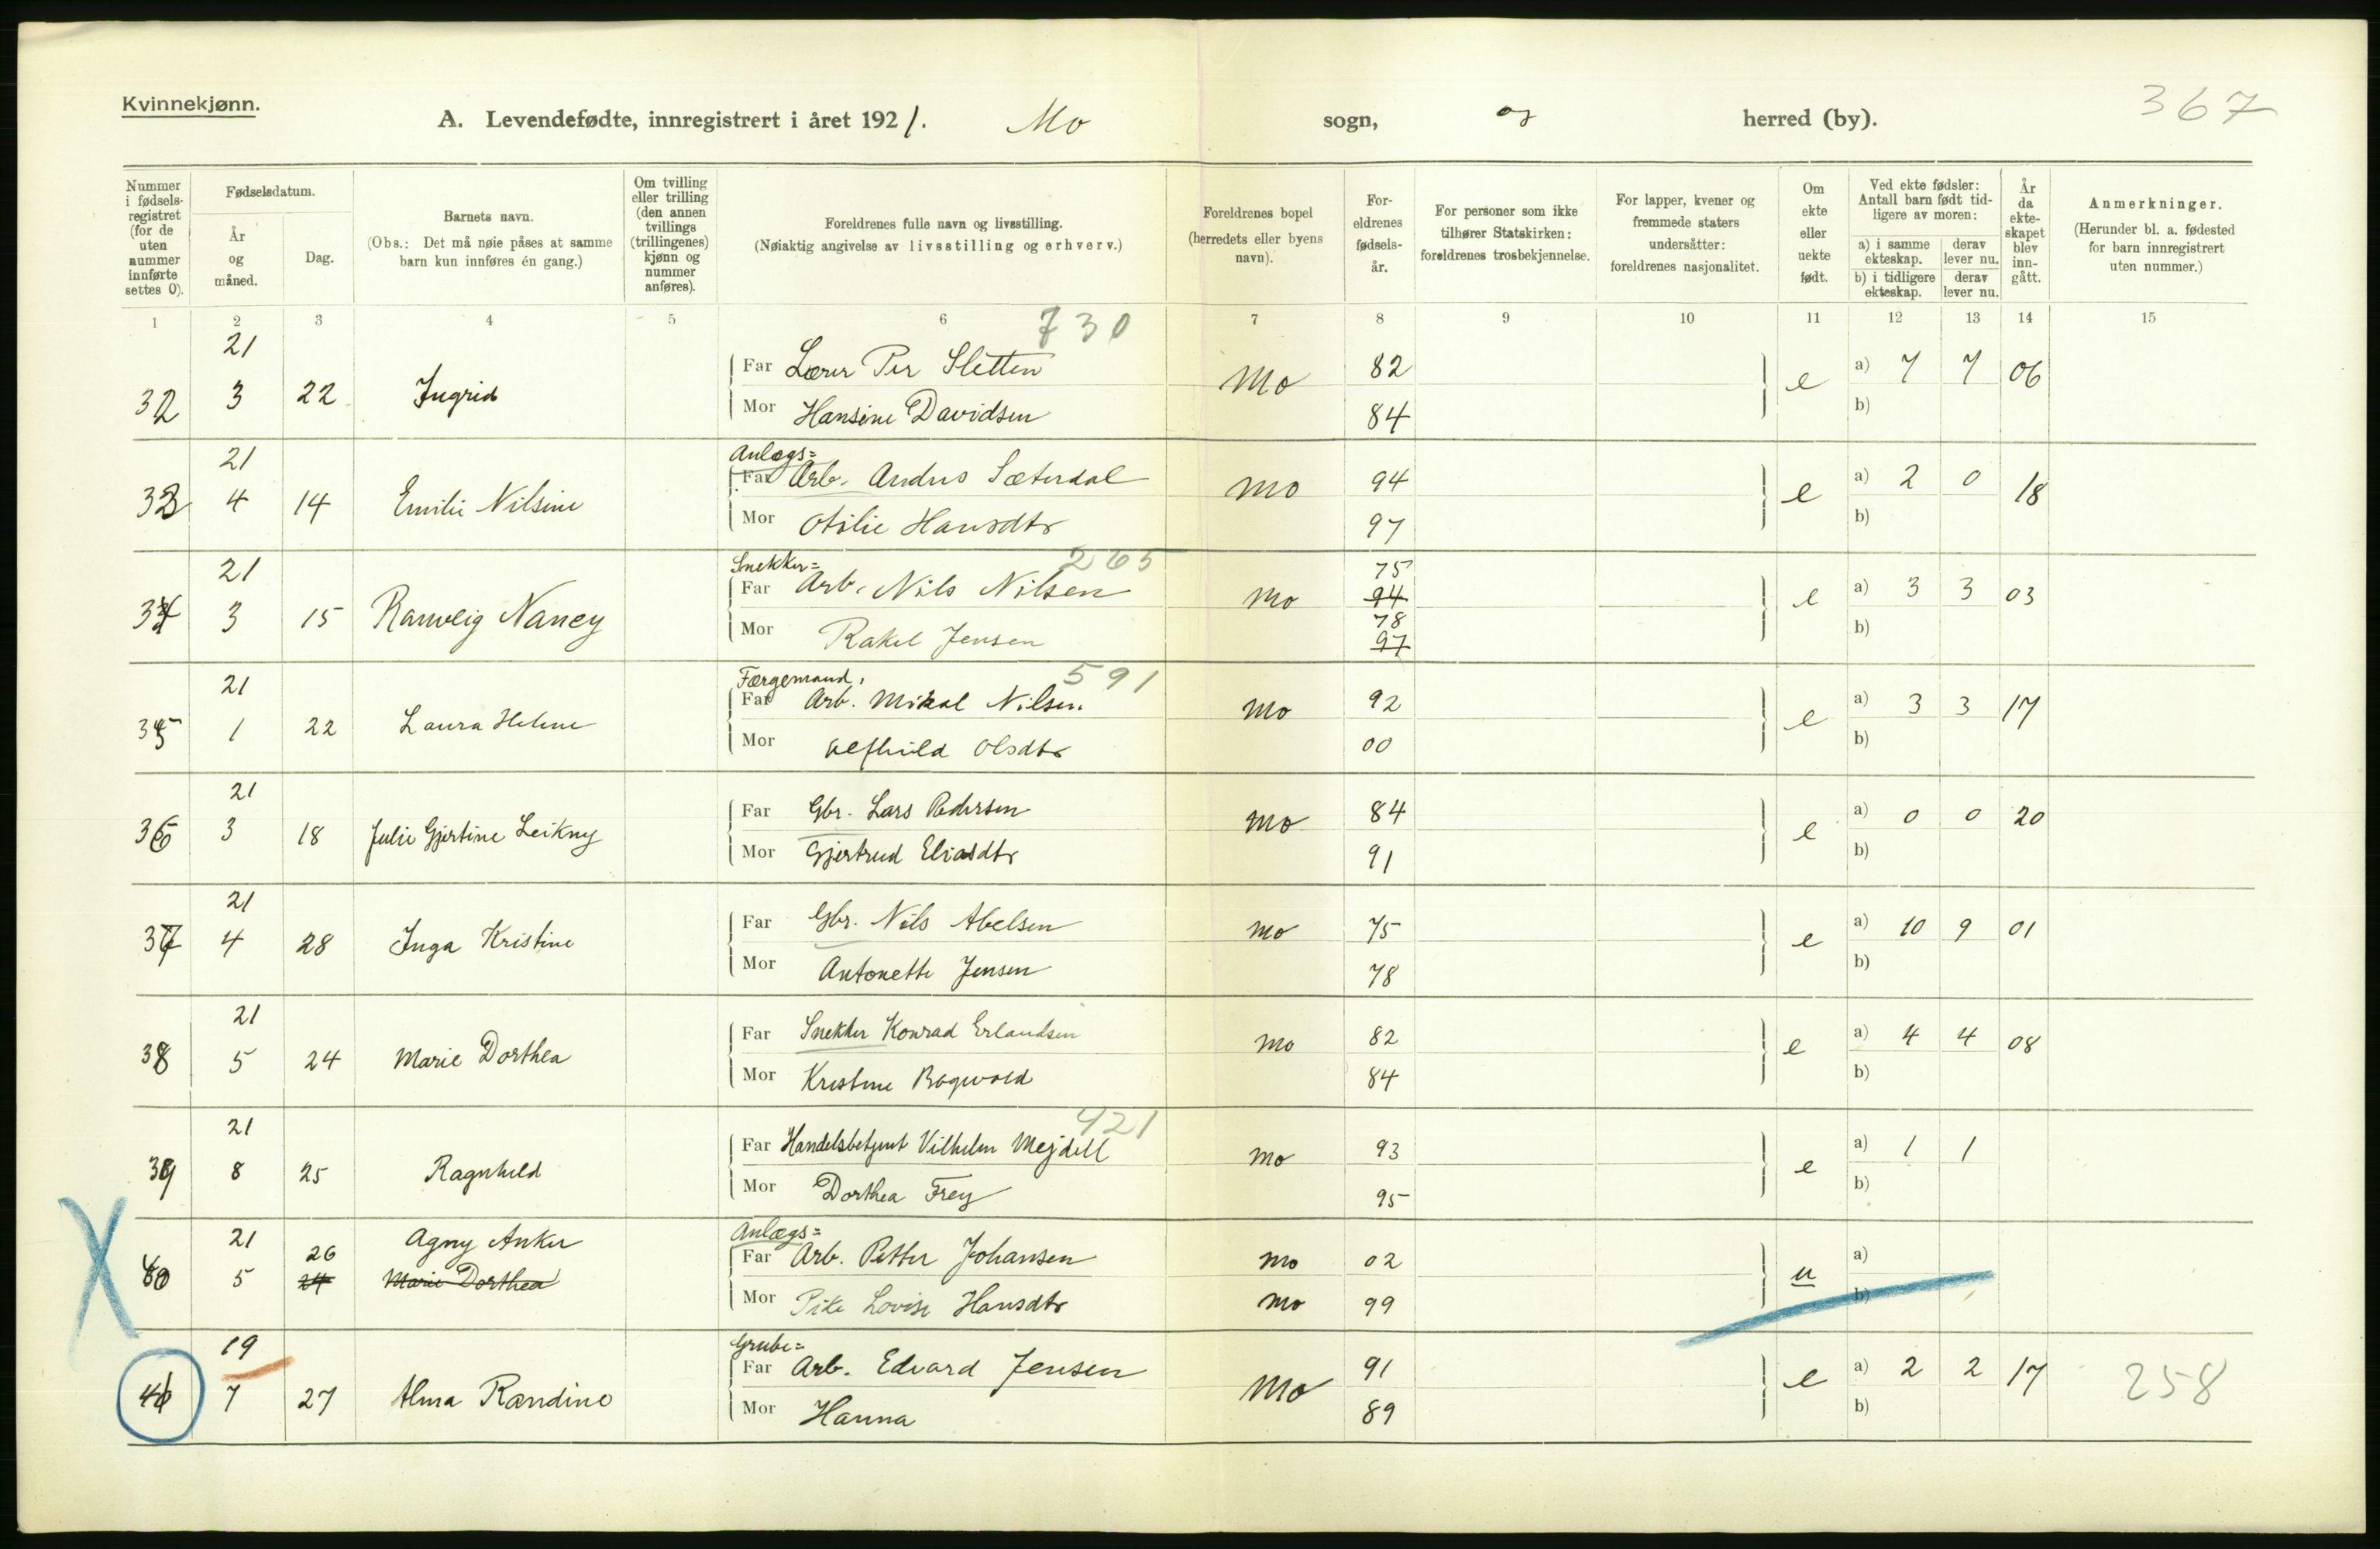 Kvinnekjønn.
A. Levendefødte, innregistrert i året 1921. Mo sogn, og herred (by). 367
Nummer i fødselsregistret (for de uten nummer innførte settes 0).
Fødselsdatum.
År og måned.
Dag.
Barnets navn.
(Obs.: Det må nøie påses at samme barn kun innføres én gang.)
Om tvilling eller trilling (den annen tvillings (trillingenes) kjønn og nummer anføres).
Foreldrenes fulle navn og livsstilling.
(Nøiaktig angivelse av livsstilling og erhverv.)
Foreldrenes bopel (herredets eller byens navn).
Foreldrenes fødselsår.
For personer som ikke tilhører Statskirken: foreldrenes trosbekjennelse.
For lapper, kvener og fremmede staters undersåtter: foreldrenes nasjonalitet.
Om ekte eller uekte født.
Ved ekte fødsler: Antall barn født tidligere av moren:
a) i samme ekteskap. derav lever nu.
b) i tidligere ekteskap. derav lever nu.
År da ekteskapet blev inngått.
Anmerkninger.
(Herunder bl. a. fødested for barn innregistrert uten nummer.)
1 2 3 4 5 6 7 8 9 10 11 12 13 14 15
730
32 21 3 22 Ingrid Far Lærer Per Sletten Mo 82 e a) 7 7 06
Mor Hansine Davidsen 84 b)
Anlægs=
33 21 4 14 Emilie Nilsine Far Arb. Anders Sæterdal Mo 94 e a) 2 0 18
Mor Otilie Hansdtr 97 b)
Snekker= 265
34 21 3 15 Ranveig Nancy Far Arb. Nils Nilsen Mo 75 94 e a) 3 3 03
Mor Rakel Jensen 78 97 b)
Færgemand, 591
35 21 1 22 Laura Helene Far Arb. Mikal Nilsen Mo 92 e a) 3 3 17
Mor Alfhild Olsdtr 00 b)
36 21 3 18 Julie Gjertine Leikny Far Gbr. Lars Pedersen Mo 84 e a) 0 0 20
Mor Gjertrud Eliasdtr 91 b)
37 21 4 28 Inga Kristine Far Gbr. Nils Abelsen Mo 75 e a) 10 9 01
Mor Antonette Jensen 78 b)
38 21 5 24 Marie Dorthea Far Snekker Konrad Erlandsen Mo 82 e a) 4 4 08
Mor Kristine Bogvold 84 b)
421
39 21 8 25 Ragnhild Far Handelsbetjent Vilhelm Mejdell Mo 93 e a) 1 1
Mor Dorthea Frey 95 b)
Anlægs=
40 21 5 26 24 Agny Anker Marie Dorthea Far Arb. Petter Johansen Mo 02 u a)
Mor Pike Lovise Hansdtr Mo 99 b)
Grube=
41 19 7 27 Alma Randine Far Arb. Edvard Jensen Mo 91 e a) 2 2 17 258
Mor Hanna 89 b)